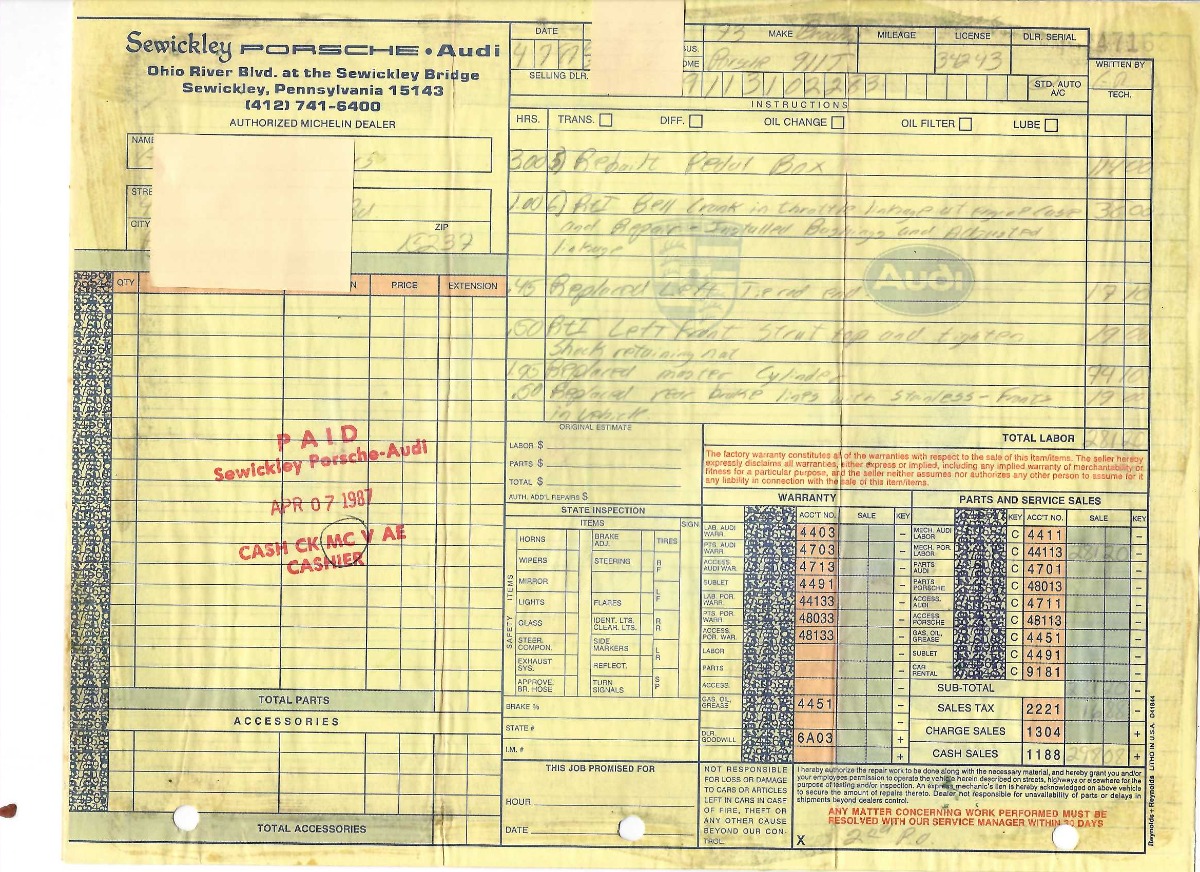 Sewickley PORSCHE • Audi
Ohio River Blvd. at the Sewickley Bridge
Sewickley, Pennsylvania 15143
(412) 741-6400
AUTHORIZED MICHELIN DEALER
NAME
STRE
CITY
ZIP
15237
DATE
4 7 87
SELLING DLR.
BUS.
OME
73 MAKE
Porsche 911T
MILEAGE
LICENSE
34243
DLR. SERIAL
4716
WRITTEN BY
TECH.
STD. AUTO
A/C
9113102283
INSTRUCTIONS
HRS. TRANS. DIFF. OIL CHANGE OIL FILTER LUBE
3.00 5) Rebuilt Pedal Box 114.00
1.00 6) R&I Bell Crank in throttle linkage at engine case 38.00
and Repair - Installed Bushings and Adjusted
linkage
.45 Replaced Left Tierod end 17.10
.50 R&I Left Front Strut top and tighten 19.00
Shock retaining nut
1.95 Replaced master Cylinder 74.10
.50 Replaced rear brake lines with stainless - Fronts 19.00
in vehicle
Audi
TOTAL LABOR 281.20
QTY
N
PRICE
EXTENSION
PAID
Sewickley Porsche-Audi
APR 07 1987
CASH CK MC V AE
CASHIER
TOTAL PARTS
ACCESSORIES
TOTAL ACCESSORIES
ORIGINAL ESTIMATE
LABOR $
PARTS $
TOTAL $
AUTH. ADD'L REPAIRS $
The factory warranty constitutes all of the warranties with respect to the sale of this item/items. The seller hereby
expressly disclaims all warranties, either express or implied, including any implied warranty of merchantability or
fitness for a particular purpose, and the seller neither assumes nor authorizes any other person to assume for it
any liability in connection with the sale of this item/items.
STATE INSPECTION
ITEMS
SIGN
SAFETY ITEMS
HORNS
BRAKE ADJ.
TIRES
WIPERS
STEERING
R F
MIRROR
L F
LIGHTS
FLARES
GLASS
IDENT. LTS. CLEAR. LTS.
R R
STEER. COMPON.
SIDE MARKERS
L R
EXHAUST SYS.
REFLECT.
APPROVE. BR. HOSE
TURN SIGNALS
S P
BRAKE %
STATE #
I.M. #
WARRANTY
ACC'T NO. SALE KEY
LAB. AUDI WARR. 4403 -
PTS. AUDI WARR. 4703 -
ACCESS. AUDI WAR. 4713 -
SUBLET 4491 -
LAB. POR. WARR. 44133 -
PTS. POR. WARR. 48033 -
ACCESS. POR. WAR. 48133 -
LABOR -
PARTS -
ACCESS. -
GAS, OIL, GREASE 4451 -
DLR. GOODWILL 6A03 +
+
PARTS AND SERVICE SALES
KEY ACC'T NO. SALE KEY
MECH. AUDI LABOR C 4411 -
MECH. POR. LABOR C 44113 281.20 -
PARTS AUDI C 4701 -
PARTS PORSCHE C 48013 -
ACCESS. AUDI C 4711 -
ACCESS PORSCHE C 48113 -
GAS, OIL, GREASE C 4451 -
SUBLET C 4491 -
CAR RENTAL C 9181 -
SUB-TOTAL
SALES TAX 2221 16.88 -
CHARGE SALES 1304 +
CASH SALES 1188 298.08 +
THIS JOB PROMISED FOR
HOUR
DATE
NOT RESPONSIBLE
FOR LOSS OR DAMAGE
TO CARS OR ARTICLES
LEFT IN CARS IN CASE
OF FIRE, THEFT OR
ANY OTHER CAUSE
BEYOND OUR CON-
TROL.
I hereby authorize the repair work to be done along with the necessary material, and hereby grant you and/or
your employees permission to operate the vehicle herein described on streets, highways or elsewhere for the
purpose of testing and/or inspection. An express mechanic's lien is hereby acknowledged on above vehicle
to secure the amount of repairs thereto. Dealer not responsible for unavailability of parts or delays in
shipments beyond dealers control.
ANY MATTER CONCERNING WORK PERFORMED MUST BE
RESOLVED WITH OUR SERVICE MANAGER WITHIN 30 DAYS
X
Reynolds + Reynolds LITHO IN U.S.A. D41864